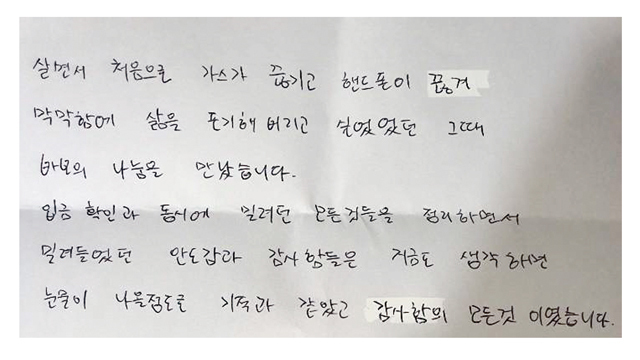 살면서 처음으로 가스가 끊기고 핸드폰이 끊겨
막막함에 삶을 포기해 버리고 싶었었던 그때
바보의 나눔을 만났습니다.
입금 확인과 동시에 밀려던 모든것들을 정리하면서
밀려들었던 안도감과 감사함들은 지금도 생각하면
눈물이 나올정도로 기적과 같았고 감사함의 모든것 이였습니다.